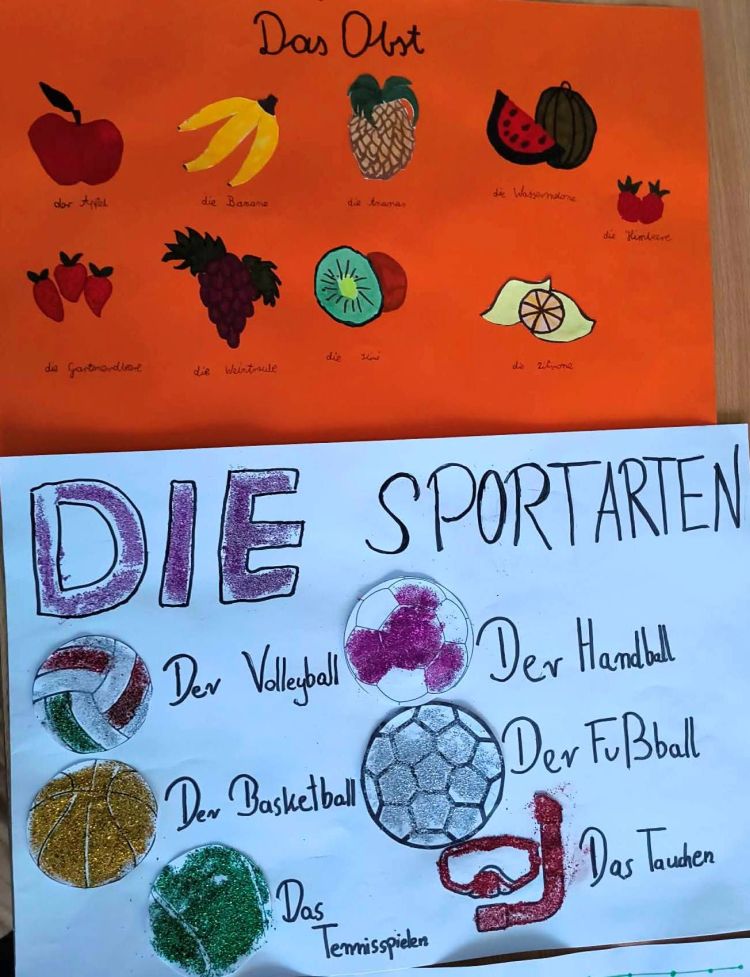 Das Obst
der Apfel
die Banane
die Ananas
die Wassermelone
die Himbeere
die Gartenerdbeere
die Weintraube
die Kiwi
die Zitrone
DIE SPORTARTEN
Der Volleyball
Der Handball
Der Basketball
Der Fußball
Das Tauchen
Das
Tennisspielen